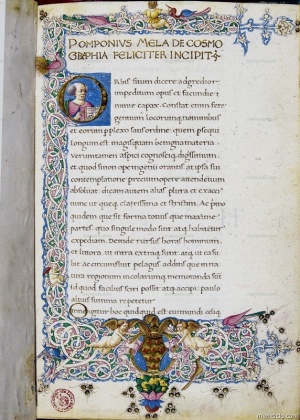 POMPONIVS MELA DE COSMO
GRAPHIA FELICITER INCIPIT
ORbis situm dicere adgredior
impeditum opus et facundie
minime capax. Constat enim fere
gentium, locorumq; nominibus
et eorum perplexo satis ordine: quem persequi
longum est magis quam benigna materia:
Verumtamen aspici cognosciq; dignissimum:
et quod si non ope ingenii orantis: at ipsa sui
contemplatione precium opere attendentium
absoluat: dicam autem alias plura et exactius
nunc ut queq; clarissima et strictim. Ac primo
quidem que sit forma totius que maxime
partes: quo singule modo sint atq; habitentur
expediam. Deinde rursus horas hominum,
et litora, ut intra extraq; sunt: atq; ut ea subit
ac circumfluit pelagus: additis que in na
tura regionum incolarumq; memoranda sunt
id quod facilius sciri possit atq; accipi: paulo
altius summa repetetur
Omne igitur hoc quidquid est cui mundi celiq;